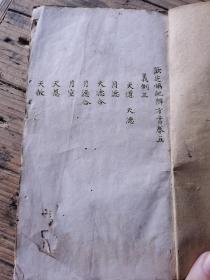 欽定協紀辨方書卷五
義例三
天道 天德
月德
天德合
月德合
月空
天恩
天赦